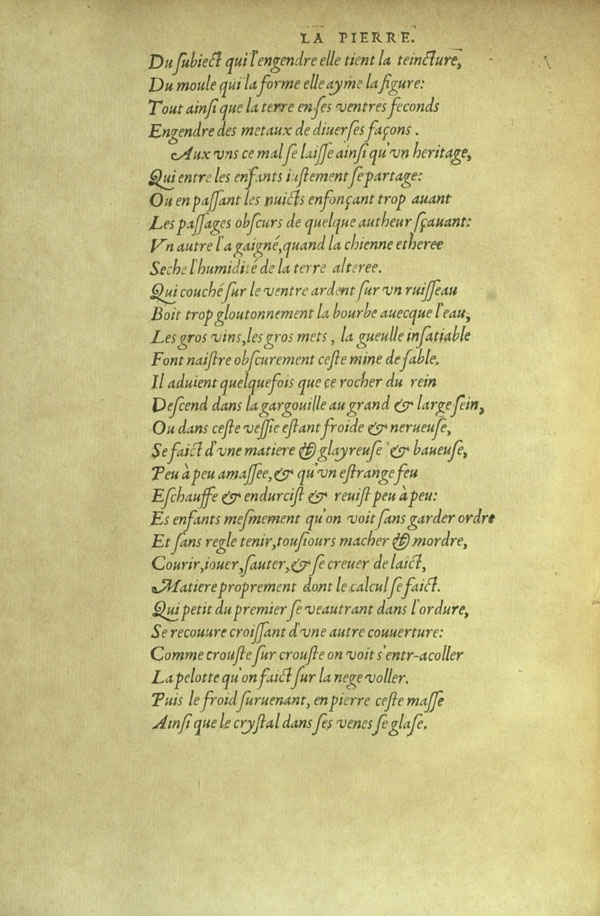 LA PIERRE.
Du ſubiect qui l'engendre elle tient la teincture,
Du moule qui la forme elle ayme la figure:
Tout ainſi que la terre en ſes ventres feconds
Engendre des metaux de diuerſes façons.
Aux vns ce mal ſe laiſſe ainſi qu'vn heritage,
Qui entre les enfants iuſtement ſe partage:
Ou en paſſant les nuicts enfonçant trop auant
Les paſſages obſcurs de quelque autheur ſçauant:
Vn autre l'a gaigné, quand la chienne etheree
Seche l'humidité de la terre alteree.
Qui couché ſur le ventre ardent ſur vn ruiſſeau
Boit trop gloutonnement la bourbe auecque l'eau,
Les gros vins, les gros mets, la gueulle inſatiable
Font naiſtre obſcurement ceſte mine de ſable.
Il aduient quelquefois que ce rocher du rein
Deſcend dans la gargouille au grand & large ſein,
Ou dans ceſte veſſie eſtant froide & nerueuſe,
Se faict d'vne matiere & glayreuſe & baueuſe,
Peu à peu amaſſee, & qu'vn eſtrange feu
Eſchauffe & endurciſt & reuiſt peu à peu:
Es enfants meſmement qu'on voit ſans garder ordre
Et ſans regle tenir, touſiours macher & mordre,
Courir, iouer, ſauter, & ſe creuer de laict,
Matiere proprement dont le calcul ſe faict.
Qui petit du premier ſe veautrant dans l'ordure,
Se recouure croiſſant d'vne autre couuerture:
Comme crouſte ſur crouſte on voit s'entr-acoller
La pelotte qu'on faict ſur la nege voller.
Puis le froid ſuruenant, en pierre ceſte maſſe
Ainſi que le cryſtal dans ſes venes ſe glaſe.